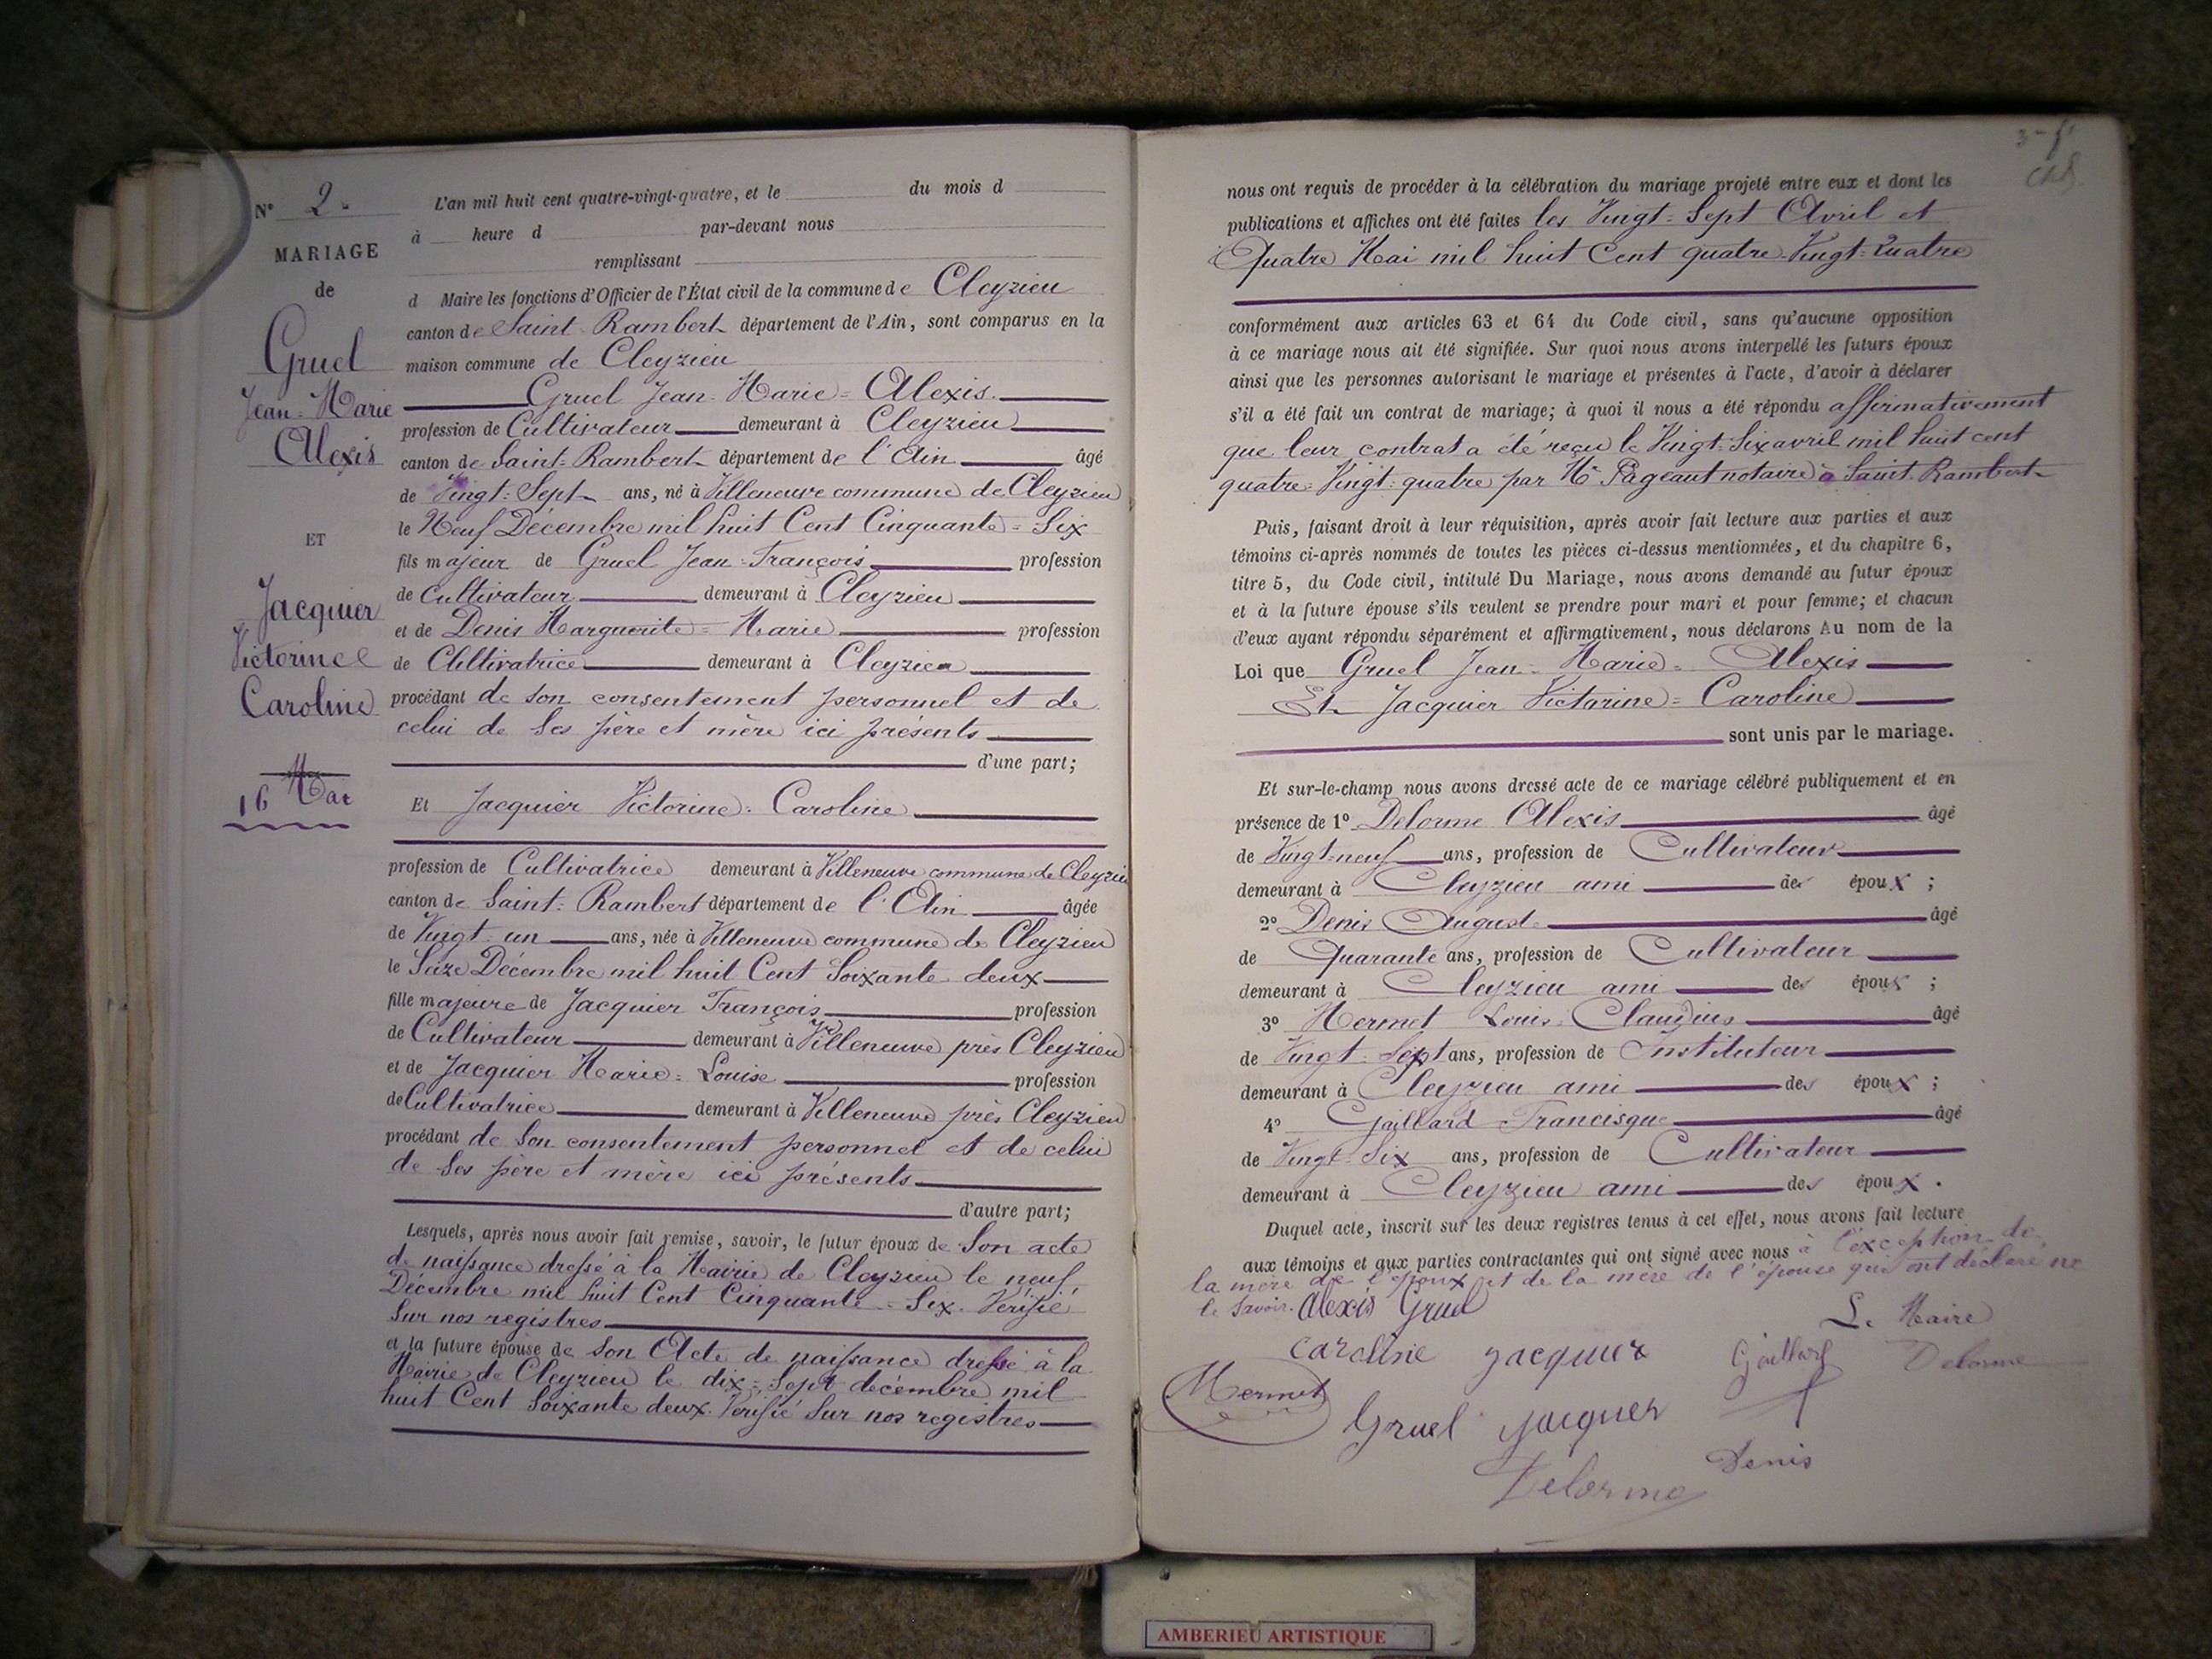 N° 2.
MARIAGE
de
Gruel
Jean=Marie
Alexis
ET
Jacquier
Victorine
Caroline
16 Mai
L'an mil huit cent quatre-vingt-quatre, et le du mois d
à heure d par-devant nous
remplissant
d Maire les fonctions d'Officier de l'État civil de la commune de Cleyzieu
canton de Saint Rambert département de l'Ain, sont comparus en la
maison commune de Cleyzieu
Gruel Jean=Marie=Alexis
profession de Cultivateur demeurant à Cleyzieu
canton de Saint=Rambert département de l'Ain âgé
de Vingt=Sept ans, né à Villeneuve commune de Cleyzieu
le Neuf Décembre mil huit Cent Cinquante=Six
fils majeur de Gruel Jean=François profession
de Cultivateur demeurant à Cleyzieu
et de Denis Marguerite=Marie profession
de Cultivatrice demeurant à Cleyzieu
procédant de son consentement personnel et de
celui de ses père et mère ici présents
d'une part;
Et Jacquier Victorine=Caroline
profession de Cultivatrice demeurant à Villeneuve commune de Cleyzieu
canton de Saint=Rambert département de l'Ain âgée
de Vingt un ans, née à Villeneuve commune de Cleyzieu
le Seize Décembre mil huit Cent Soixante deux
fille majeure de Jacquier François profession
de Cultivateur demeurant à Villeneuve près Cleyzieu
et de Jacquier Marie=Louise profession
de Cultivatrice demeurant à Villeneuve près Cleyzieu
procédant de son consentement personnel et de celui
de ses père et mère ici présents
d'autre part;
Lesquels, après nous avoir fait remise, savoir, le futur époux de Son acte
de naissance dressé à la Mairie de Cleyzieu le neuf
Décembre mil huit Cent Cinquante=Six. Vérifié
Sur nos registres
et la future épouse de Son Acte de naissance dressé à la
Mairie de Cleyzieu le dix=Sept décembre mil
huit Cent Soixante deux. Vérifié Sur nos registres
nous ont requis de procéder à la célébration du mariage projeté entre eux et dont les
publications et affiches ont été faites les Vingt=Sept Avril et
Quatre Mai mil huit Cent quatre=Vingt=Quatre
conformément aux articles 63 et 64 du Code civil, sans qu'aucune opposition
à ce mariage nous ait été signifiée. Sur quoi nous avons interpellé les futurs époux
ainsi que les personnes autorisant le mariage et présentes à l'acte, d'avoir à déclarer
s'il a été fait un contrat de mariage; à quoi il nous a été répondu affirmativement
que leur contrat a été reçu le Vingt=Six avril mil huit cent
quatre=Vingt=quatre par Me Pageaut notaire à Saint Rambert
Puis, faisant droit à leur réquisition, après avoir fait lecture aux parties et aux
témoins ci-après nommés de toutes les pièces ci-dessus mentionnées, et du chapitre 6,
titre 5, du Code civil, intitulé Du Mariage, nous avons demandé au futur époux
et à la future épouse s'ils veulent se prendre pour mari et pour femme; et chacun
d'eux ayant répondu séparément et affirmativement, nous déclarons Au nom de la
Loi que Gruel Jean=Marie=Alexis
Et Jacquier Victorine=Caroline
sont unis par le mariage.
Et sur-le-champ nous avons dressé acte de ce mariage célébré publiquement et en
présence de 1° Delorme Alexis âgé
de Vingt=neuf ans, profession de Cultivateur
demeurant à Cleyzieu ami des époux ;
2° Denis Auguste âgé
de Quarante ans, profession de Cultivateur
demeurant à Cleyzieu ami des époux ;
3° Mermet Louis=Claudius âgé
de Vingt=Sept ans, profession de Instituteur
demeurant à Cleyzieu ami des époux ;
4° Gaillard Francisque âgé
de Vingt=Six ans, profession de Cultivateur
demeurant à Cleyzieu ami des époux .
Duquel acte, inscrit sur les deux registres tenus à cet effet, nous avons fait lecture
aux témoins et aux parties contractantes qui ont signé avec nous à l'exception de
la mère de l'époux et de la mère de l'épouse qui ont déclaré ne
le savoir. Alexis Gruel
Le Maire
Caroline Jacquier Gaillard Delorme
Mermet
Gruel Jacquier
Denis
Delorme
AMBERIEU ARTISTIQUE